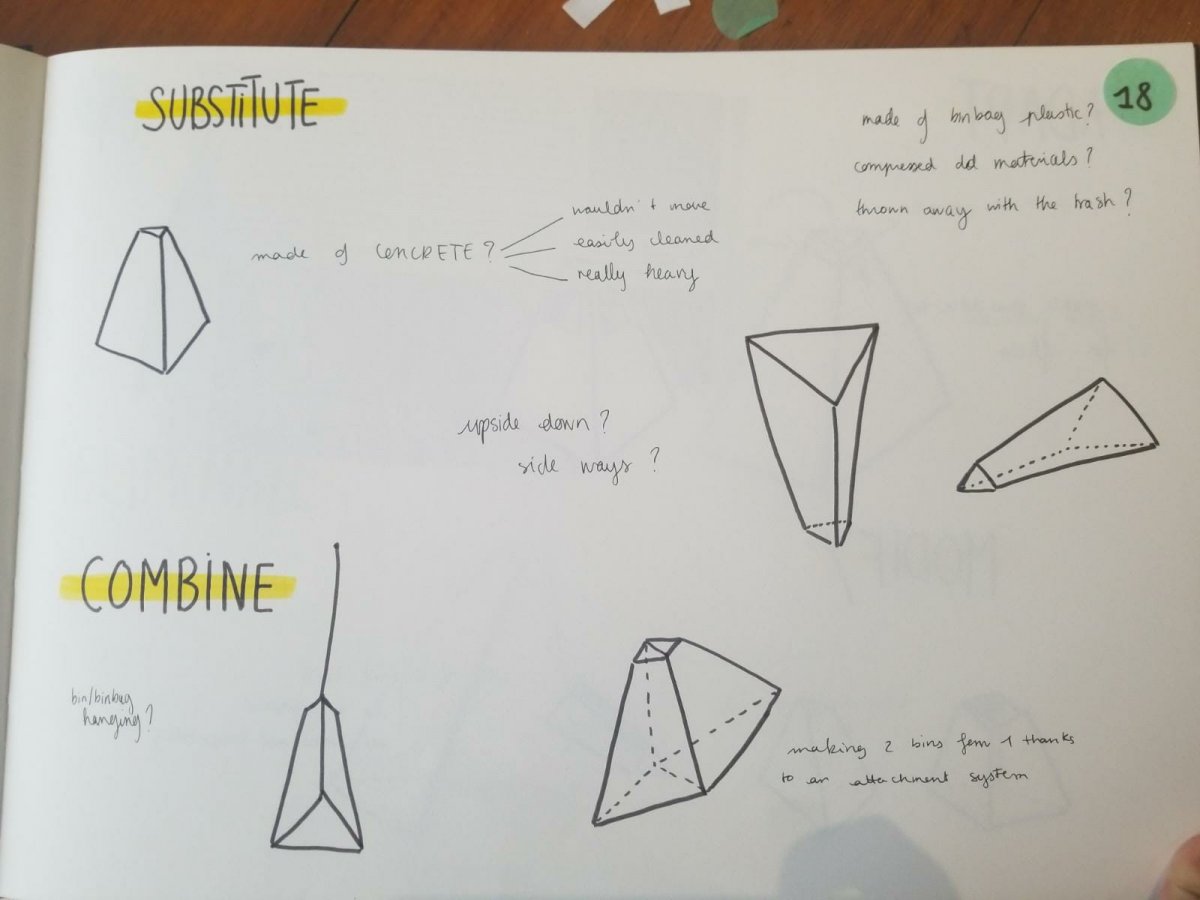 SUBSTITUTE
18
made of binbag plastic?
compressed old materials?
thrown away with the trash?
made of CONCRETE?
wouldn't move
easily cleaned
really heavy
upside down?
side ways?
COMBINE
bin/binbag
hanging?
making 2 bins fem 1 thanks
to an attachment system